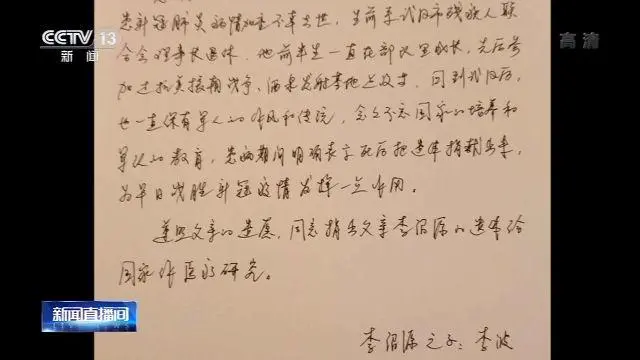 CCTV 13
新闻
高清
患新冠肺炎病情加重不幸去世,生前系武汉市残疾人联
合会理事长退休。他前半生一直在部队里成长,先后参
加过抗美援朝战争、酒泉发射基地 回到武汉后,
也一直保有军人的作风和传统,念念不忘国家的培养和
军队的教育,患病期间明确表示死后把遗体捐献出来,
为早日战胜新冠疫情发挥一点作用。
遵照父亲的遗愿,同意捐出父亲李绍源的遗体给
国家作医疗研究。
李绍源之子:李波
新闻直播间